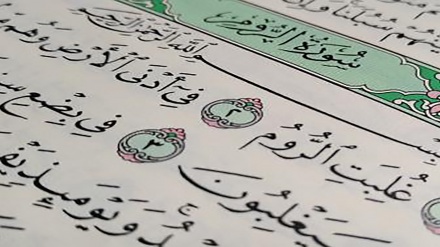 سُورَةُ الرُّومِ
بِسْمِ اللَّهِ الرَّحْمَٰنِ الرَّحِيمِ
غُلِبَتِ ٱلرُّومُ ٢ فِىٓ أَدْنَى ٱلْأَرْضِ وَهُم
سَيَغْلِبُونَ ٣ فِى بِضْعِ
وَيَوْمَئِذٍ